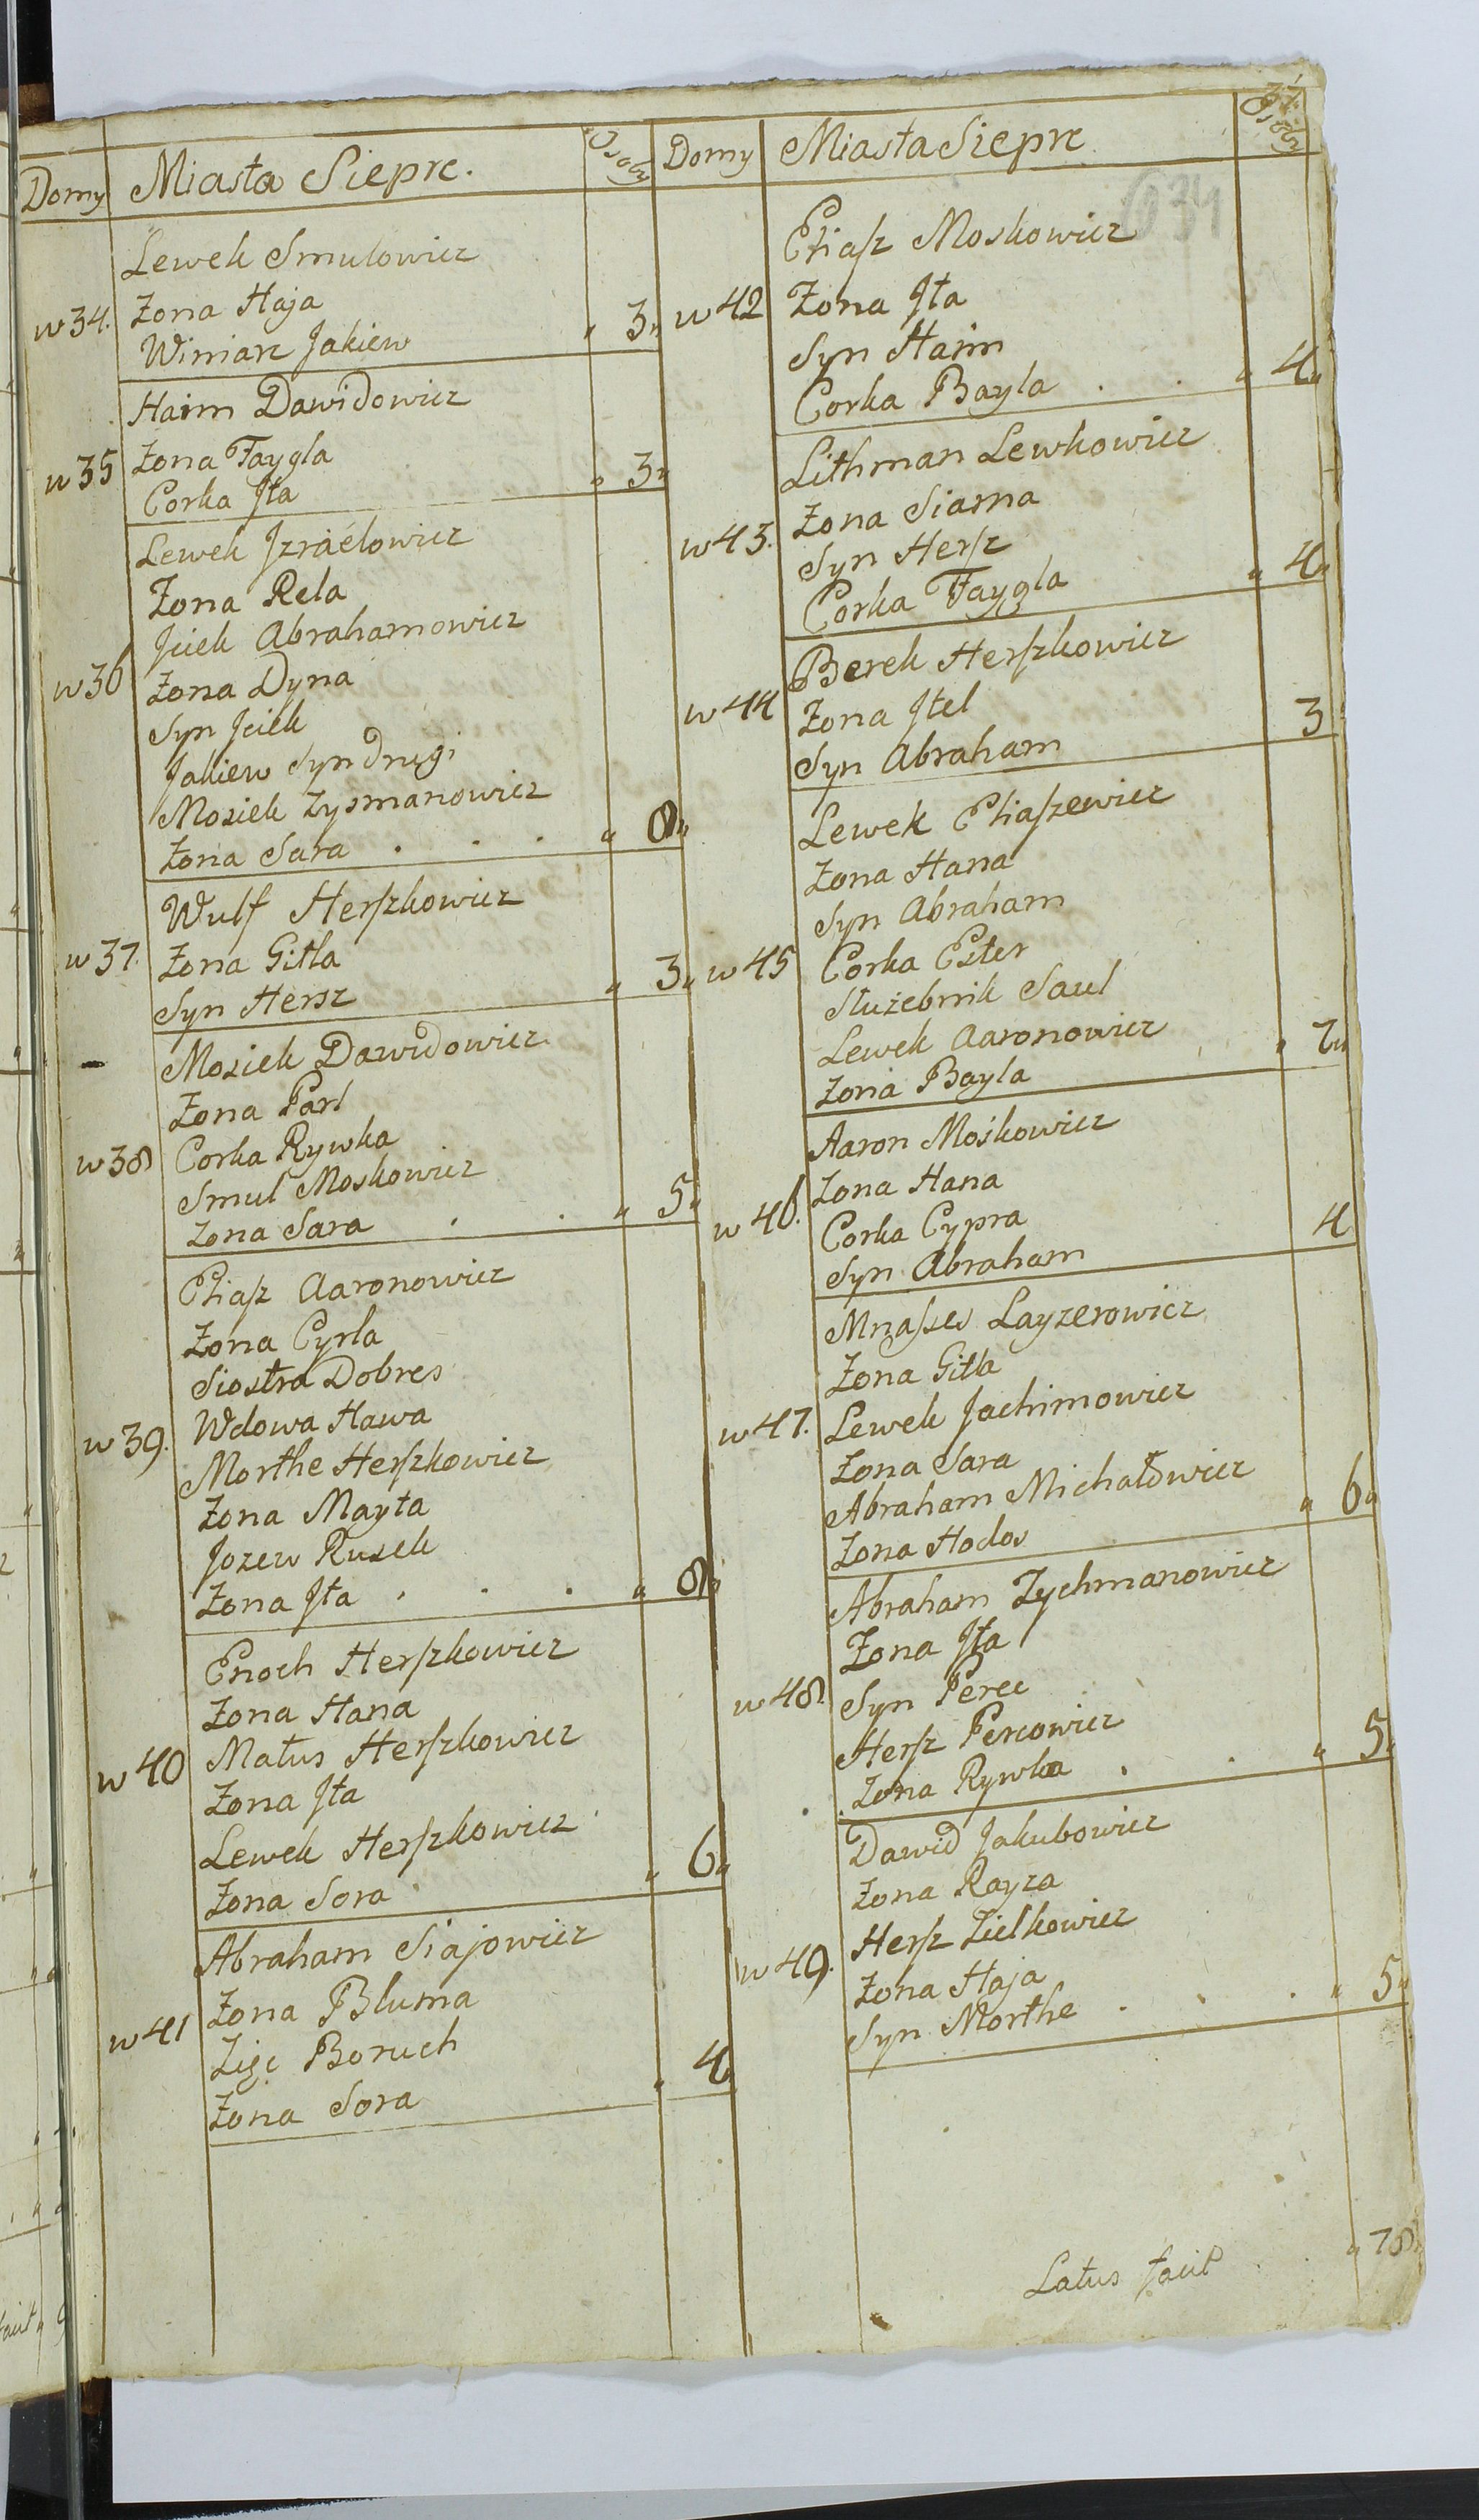 Domy Miasta Sieprc. Osoby
Lewek Smulowicz
w 34. Zona Haja
Winiarz Jakiew „ 3„
Haim Dawidowicz
w 35 Zona Faygla
Corka Jta „ 3„
Lewek Jzraélowicz
Zona Rela
Jciek Abrahamowicz
w 36 Zona Dyna
Syn Jciek
Jakiew Syn drugi
Mosiek Zysmanowicz
Zona Sara . . . „ 8„
Wulf Herszkowicz
w 37. Zona Gitla
Syn Hersz „ 3„
Mosiek Dawidowicz
Zona Parl
w 38 Corka Rywka
Smul Moskowicz
Zona Sara . . „ 5„
Eliasz Aaronowicz
Zona Cyrla
Siostra Dobres
w 39. Wdowa Hawa
Morthe Herszkowicz
Zona Mayta
Jozew Rusek
Zona Jta . . . „ 8„
Enoch Herszkowicz
Zona Hana
w 40 Matus Herszkowicz
Zona Jta
Lewek Herszkowicz
Zona Sora „ 6„
Abraham Siajowicz
w 41 Zona Bluma
Zięc Boruch
Zona Sora „ 4„
Domy Miasta Sieprc Osoby
34
Eliasz Moskowicz
w 42 Zona Jta
Syn Haim
Corka Bayla . . „ 4„
Lithman Lewkowicz
w 43. Zona Siarna
Syn Hersz
Corka Faygla „ 4„
Berek Herszkowicz
w 44 Zona Jtel
Syn Abraham 3
Lewek Eliaszewicz
Zona Hana
Syn Abraham
w 45 Corka Ester
Służebnik Saul
Lewek Aaronowicz
Zona Bayla „ 7„
Aaron Moskowicz
w 46. Zona Hana
Corka Cypra
Syn Abraham 4
Mnasses Layzerowicz
Zona Gitla
w 47. Lewek Jachimowicz
Zona Sara
Abraham Michałowicz
Zona Hodos „ 6„
Abraham Zychmanowicz
Zona Jta
w 48. Syn Perec
Hersz Percowicz
Zona Rywka . . „ 5„
Dawid Jakubowicz
Zona Rayza
w 49. Hersz Zielkowicz
Zona Haja
Syn Morthe . . . „ 5„
Latus facit . . „ 78„